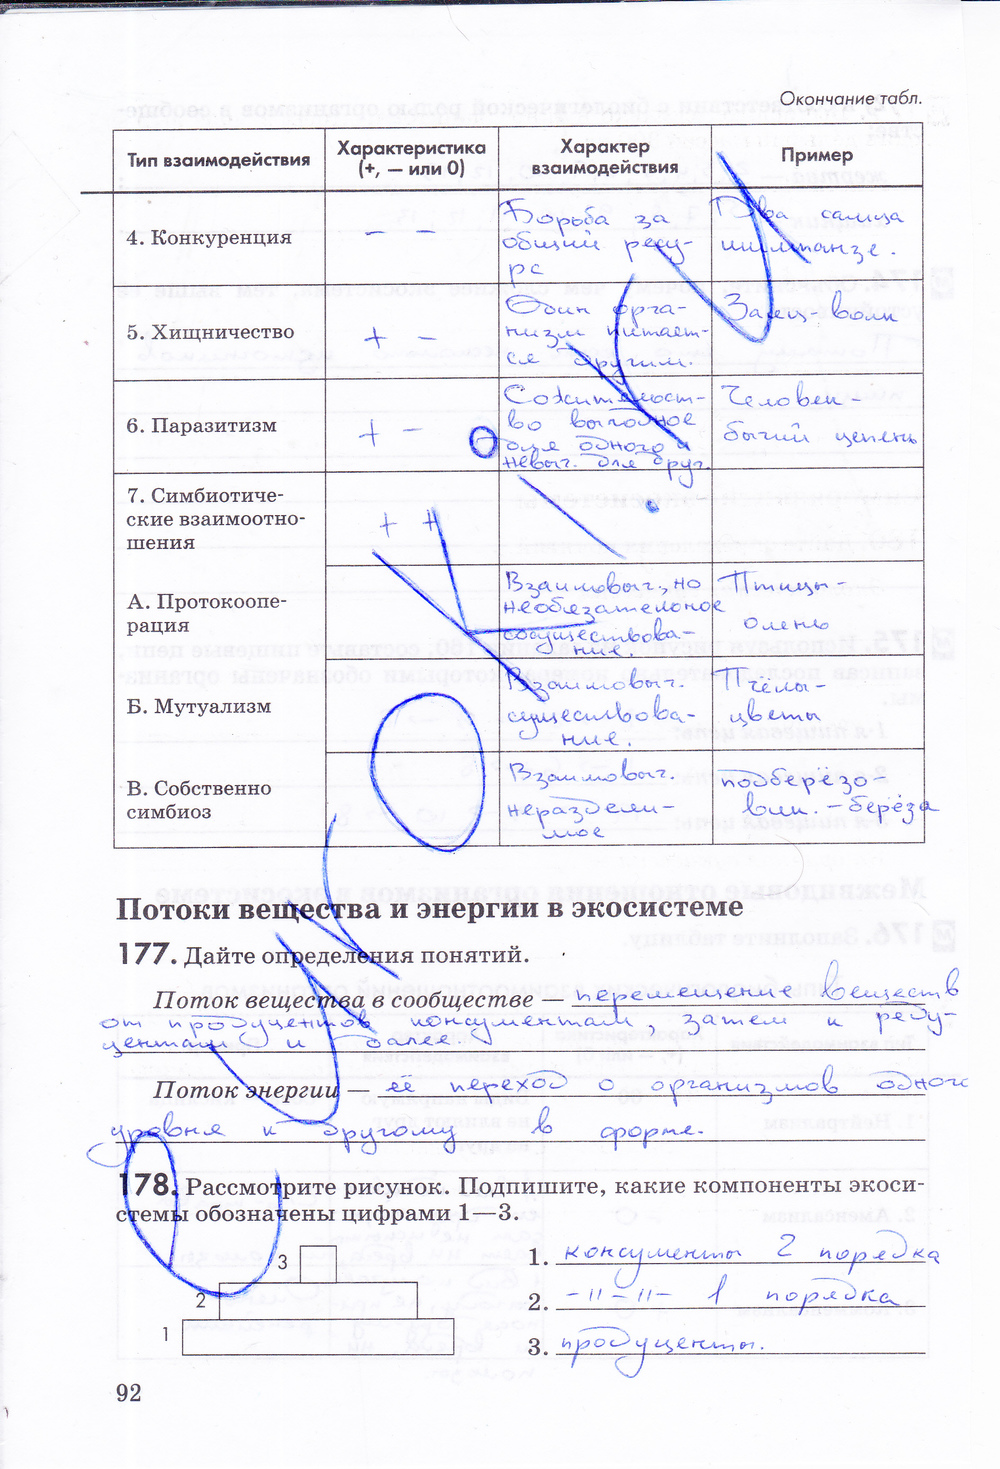 Окончание табл.
Тип взаимодействия
Характеристика
(+, — или 0)
Характер
взаимодействия
Пример
4. Конкуренция
— —
Борьба за
общий ресу-
рс
Два самца
шимпанзе.
5. Хищничество
+ —
Один орга-
низм питает-
ся другим.
Заяц-волк
6. Паразитизм
+ —
Сожительст-
во выгодное
для одного и
невыг. для друг.
Человек -
бычий цепень
7. Симбиотиче-
ские взаимоотно-
шения
+ +
А. Протокоопе-
рация
Взаимовыг., но
необязательное
сосуществова-
ние.
Птицы -
олень
Б. Мутуализм
Взаимовыг.
существова-
ние.
Пчёлы -
цветы
В. Собственно
симбиоз
Взаимовыг.
нераздели-
мое
подберёзо-
вик. - берёза
Потоки вещества и энергии в экосистеме
177. Дайте определения понятий.
Поток вещества в сообществе — перемещение веществ
от продуцентов консументам, затем к реду-
центам и далее.
Поток энергии — её переход о организмов одного
уровня к другому в форме.
178. Рассмотрите рисунок. Подпишите, какие компоненты экоси-
стемы обозначены цифрами 1—3.
3
2
1
1. консументы 2 порядка
2. -"-"- 1 порядка
3. продуценты.
92